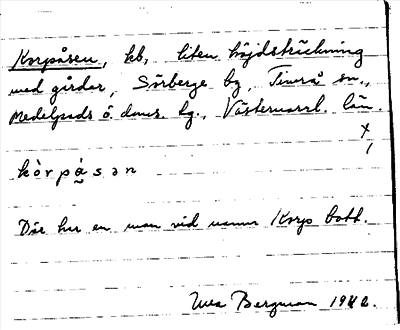 Korpåsen, kb, liten höjdsträckning
med gårdar, Sörberge by, Timrå sn.,
Medelpads ö. doms. hg., Västernorrl. län.
x
kòrpå̀sən
Där har en man vid namn Korp bott.
Bergman 1942.